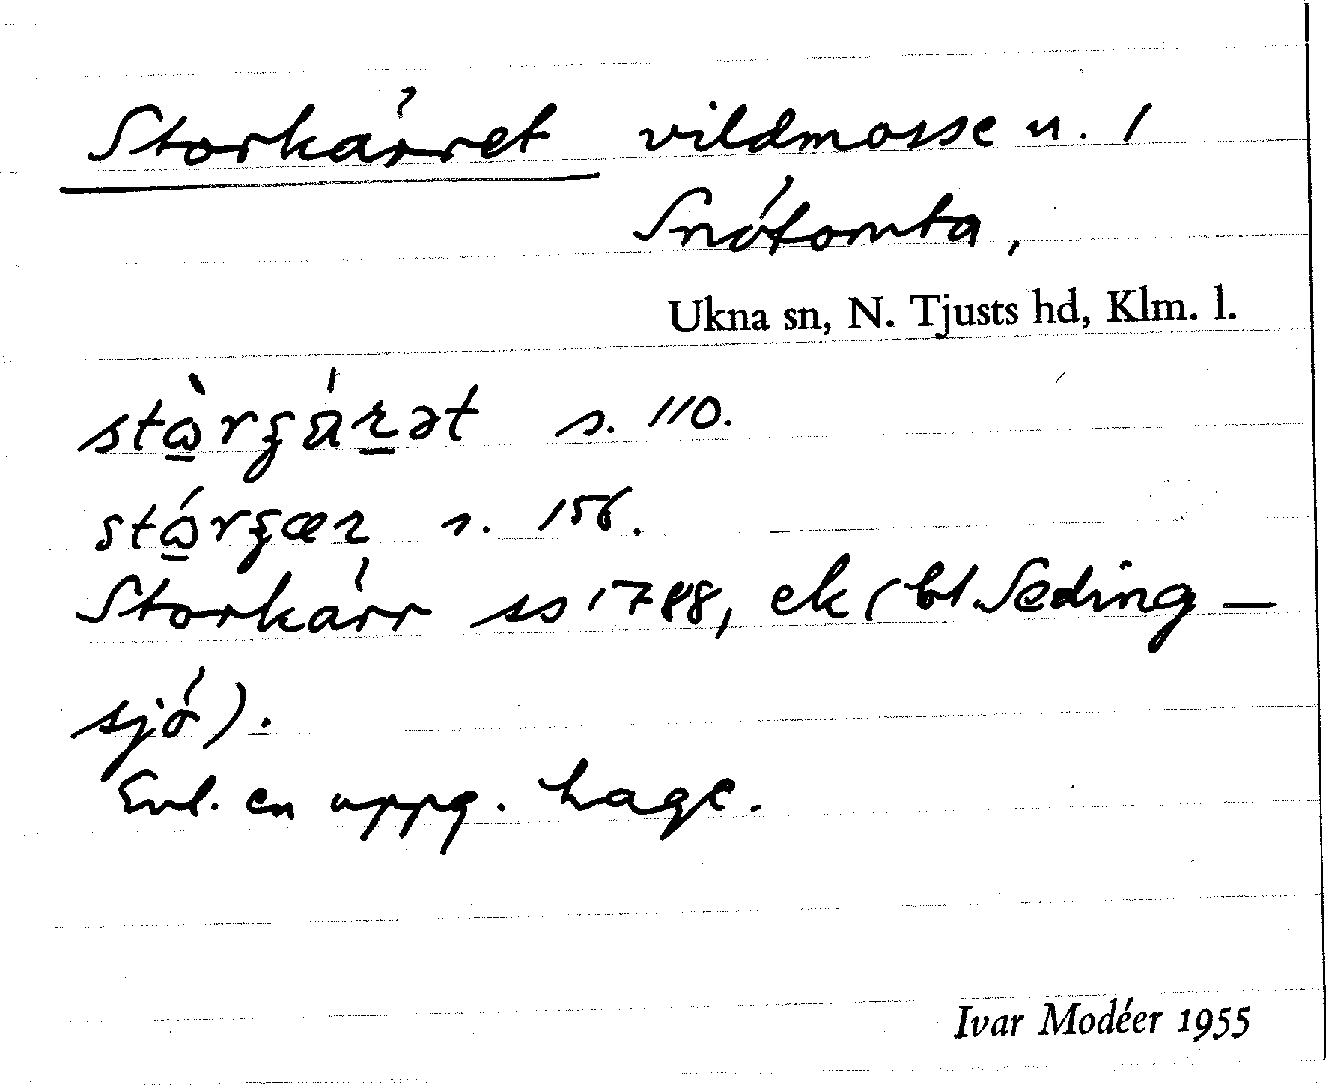 Storkärret vildmosse u. /
Snötomta,
Ukna sn, N. Tjusts hd, Klm. l.
s. 110.
s. 156.
Storkärr ss 1788, ek (bl Seding–
sjö).
Enl. en uppg. hage.
Ivar Modéer 1955